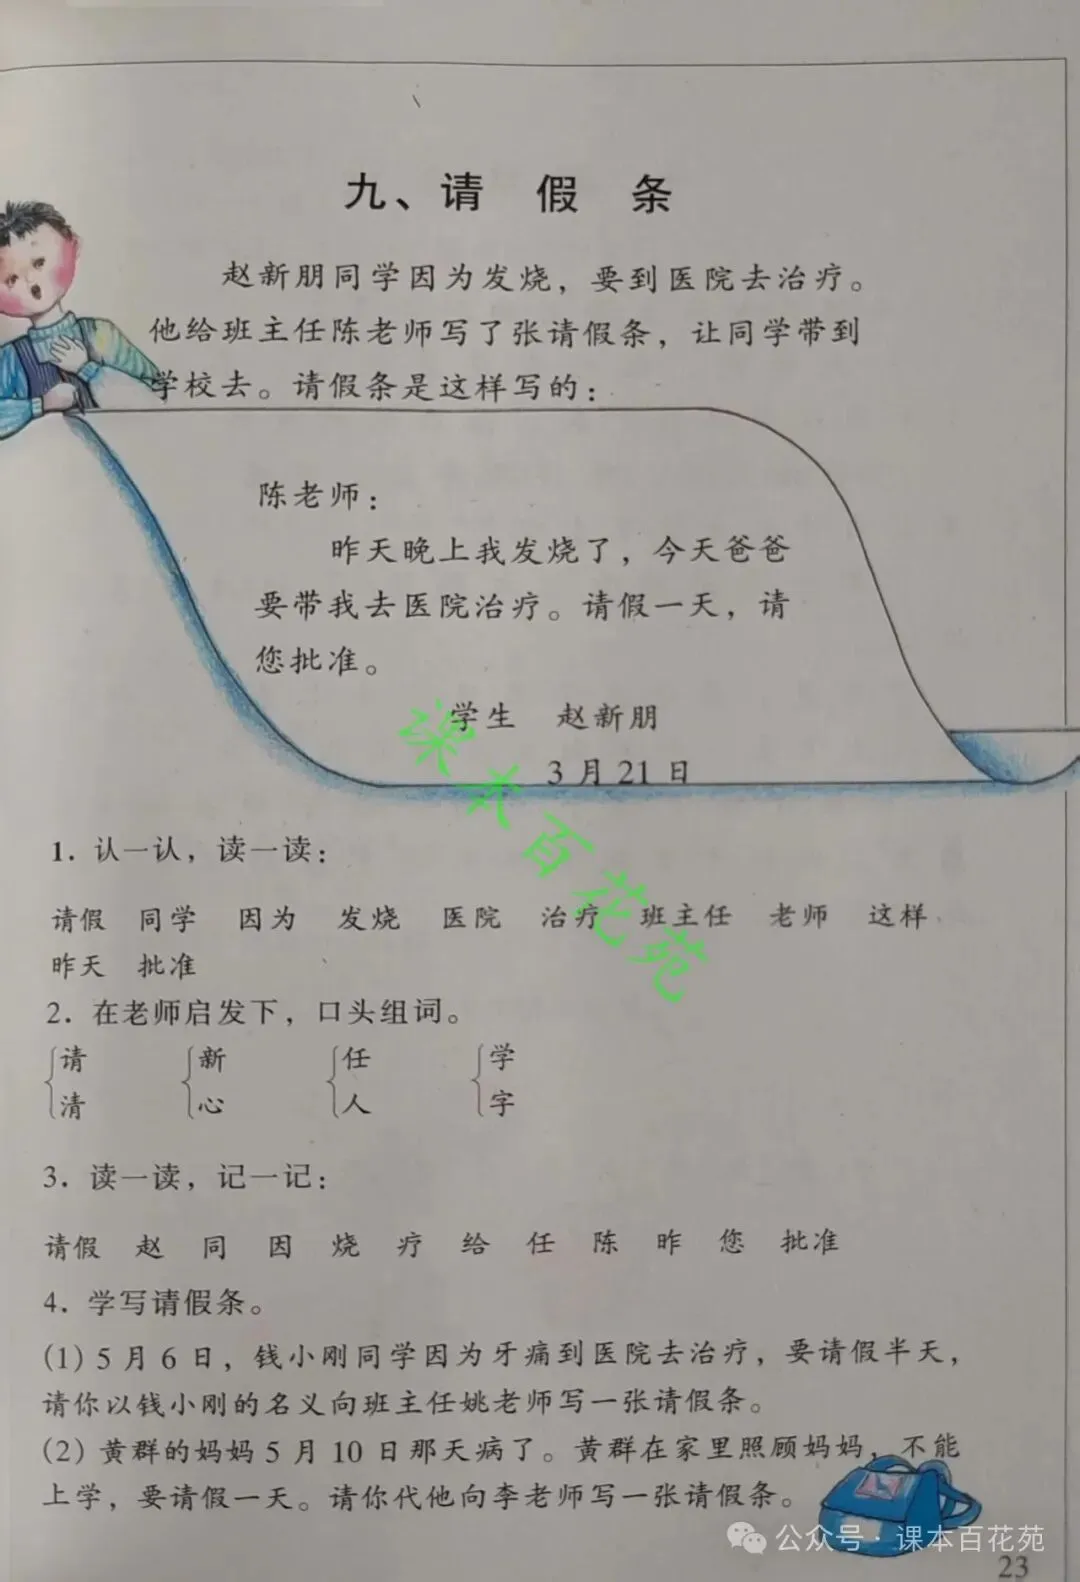 九、请 假 条
赵新朋同学因为发烧，要到医院去治疗。
他给班主任陈老师写了张请假条，让同学带到
学校去。请假条是这样写的：
陈老师：
昨天晚上我发烧了，今天爸爸
要带我去医院治疗。请假一天，请
您批准。
学生 赵新朋
3月21日
课本百花苑
1. 认一认，读一读：
请假 同学 因为 发烧 医院 治疗 班主任 老师 这样
昨天 批准
2. 在老师启发下，口头组词。
请 新 任 学
清 心 人 字
3. 读一读，记一记：
请假 赵 同 因 烧 疗 给 任 陈 昨 您 批准
4. 学写请假条。
(1) 5月6日，钱小刚同学因为牙痛到医院去治疗，要请假半天，
请你以钱小刚的名义向班主任姚老师写一张请假条。
(2) 黄群的妈妈5月10日那天病了。黄群在家里照顾妈妈，不能
上学，要请假一天。请你代他向李老师写一张请假条。
公众号·课本百花苑
23